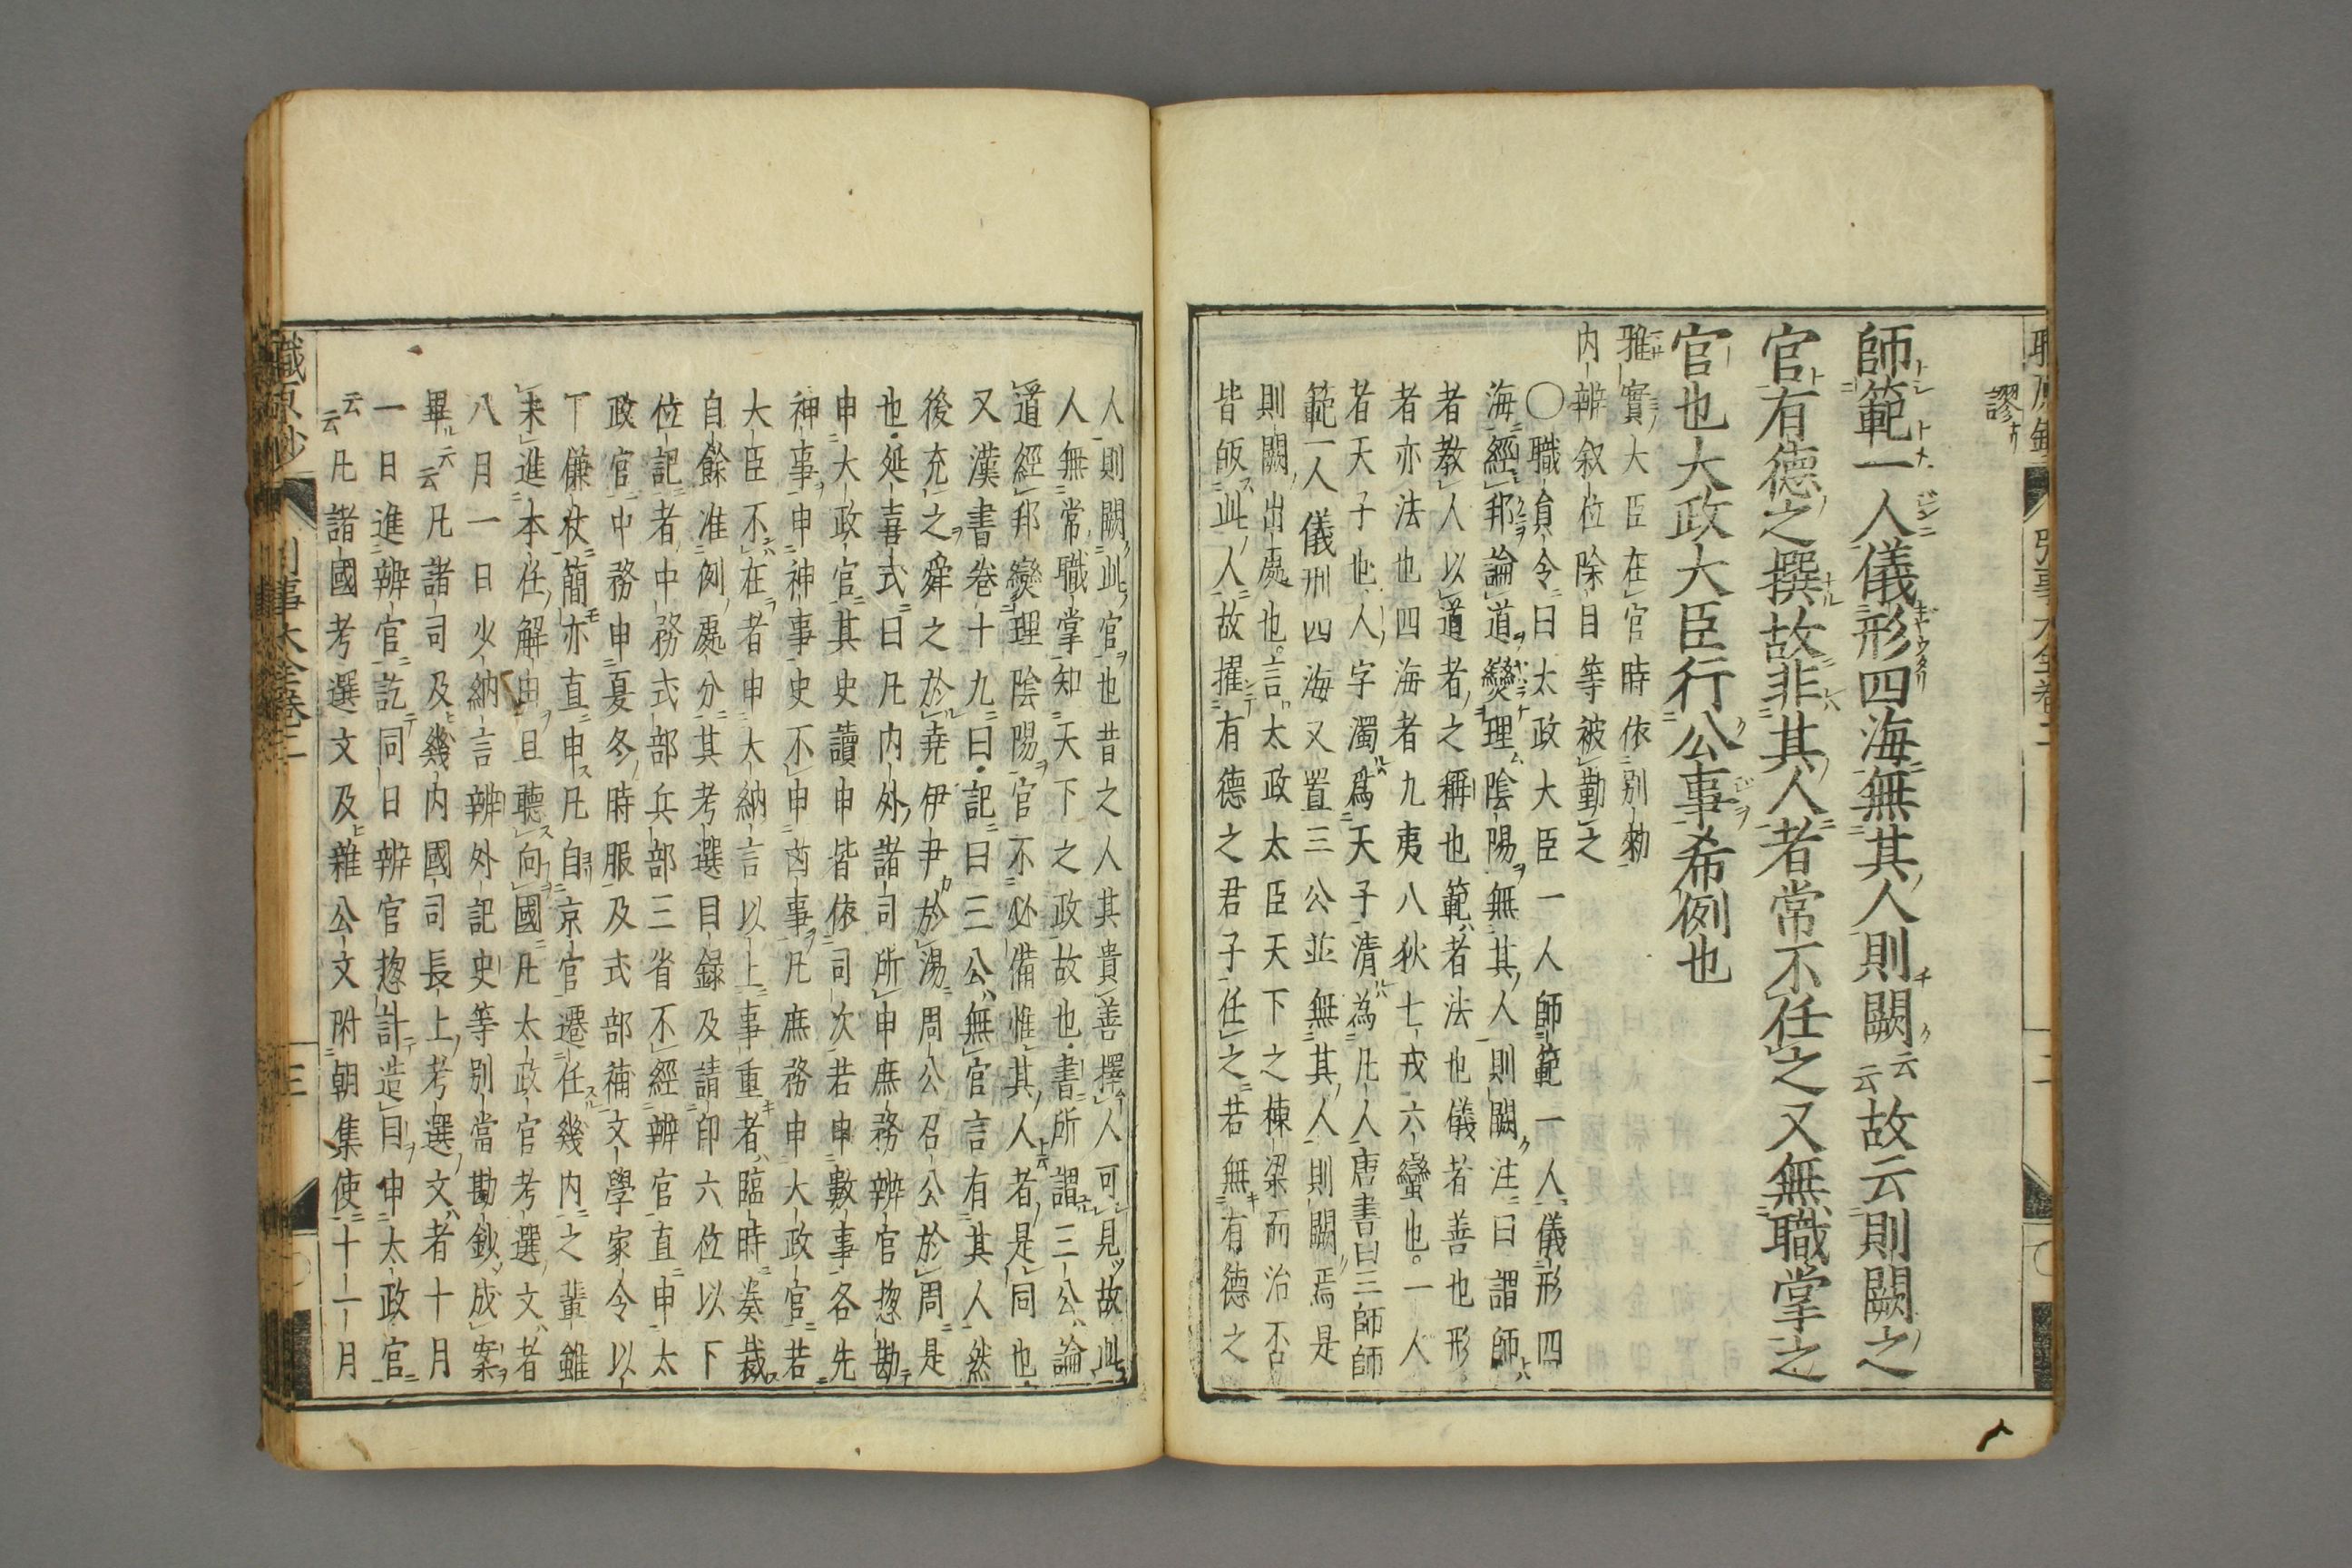 謬
師範一人儀形四海無其人則闕云云故云則闕之
官有德之撰故非其人者常不任之又無職掌之
官也大政大臣行公事希例也
雅實大臣在官時依别勅
内辨叙位除目等被勤之
〇職員令曰太政大臣一人師範一人儀形四
海經邦論道燮理陰陽無其人則闕注曰謂師
者教人以道者之稱也範者法也儀者善也形
者亦法也四海者九夷八狄七戎六蠻也。一人
者天子也人字濁爲天子清為凡人唐書曰三師師
範一人儀刑四海又置三公並無其人則闕焉是
則闕出處也。言太政太臣天下之棟梁而治不口
皆皈此人故擢有德之君子任之若無有德之
人則闕此官也昔之人其貴善擇人可見故此
人無常職掌知天下之政故也書所謂三公論
道經邦燮理陰陽官不必備惟其人者是同也
又漢書卷十九曰記曰三公無官言有其人然
後充之舜之於堯伊尹於湯周公召公於周是
也延喜式曰凡内外諸司所申庶務辨官惣勘
申大政官其史讀申皆依司次若申數事各先
神事申神事史不申凶事凡庶務申大政官若
大臣不在者申大納言以上事重者臨時奏裁
自餘准例處分其考選目録及請印六位以下
位記者中務式部兵部三省不經辨官直申太
政官中務申夏冬時服及式部補文學家令以
下傔杖簡亦直申凡自京官遷任幾内之輩雖
未進本任解由且聽向國凡太政官考選文者
八月一日少納言辨外記史等别當勘鈔成案
畢云云凡諸司及幾内國司長上考選文者十月
一日進辨官訖同日辨官惣計造目申太政官
云云凡諸國考選文及雜公文附朝集使十一月
職原抄
三